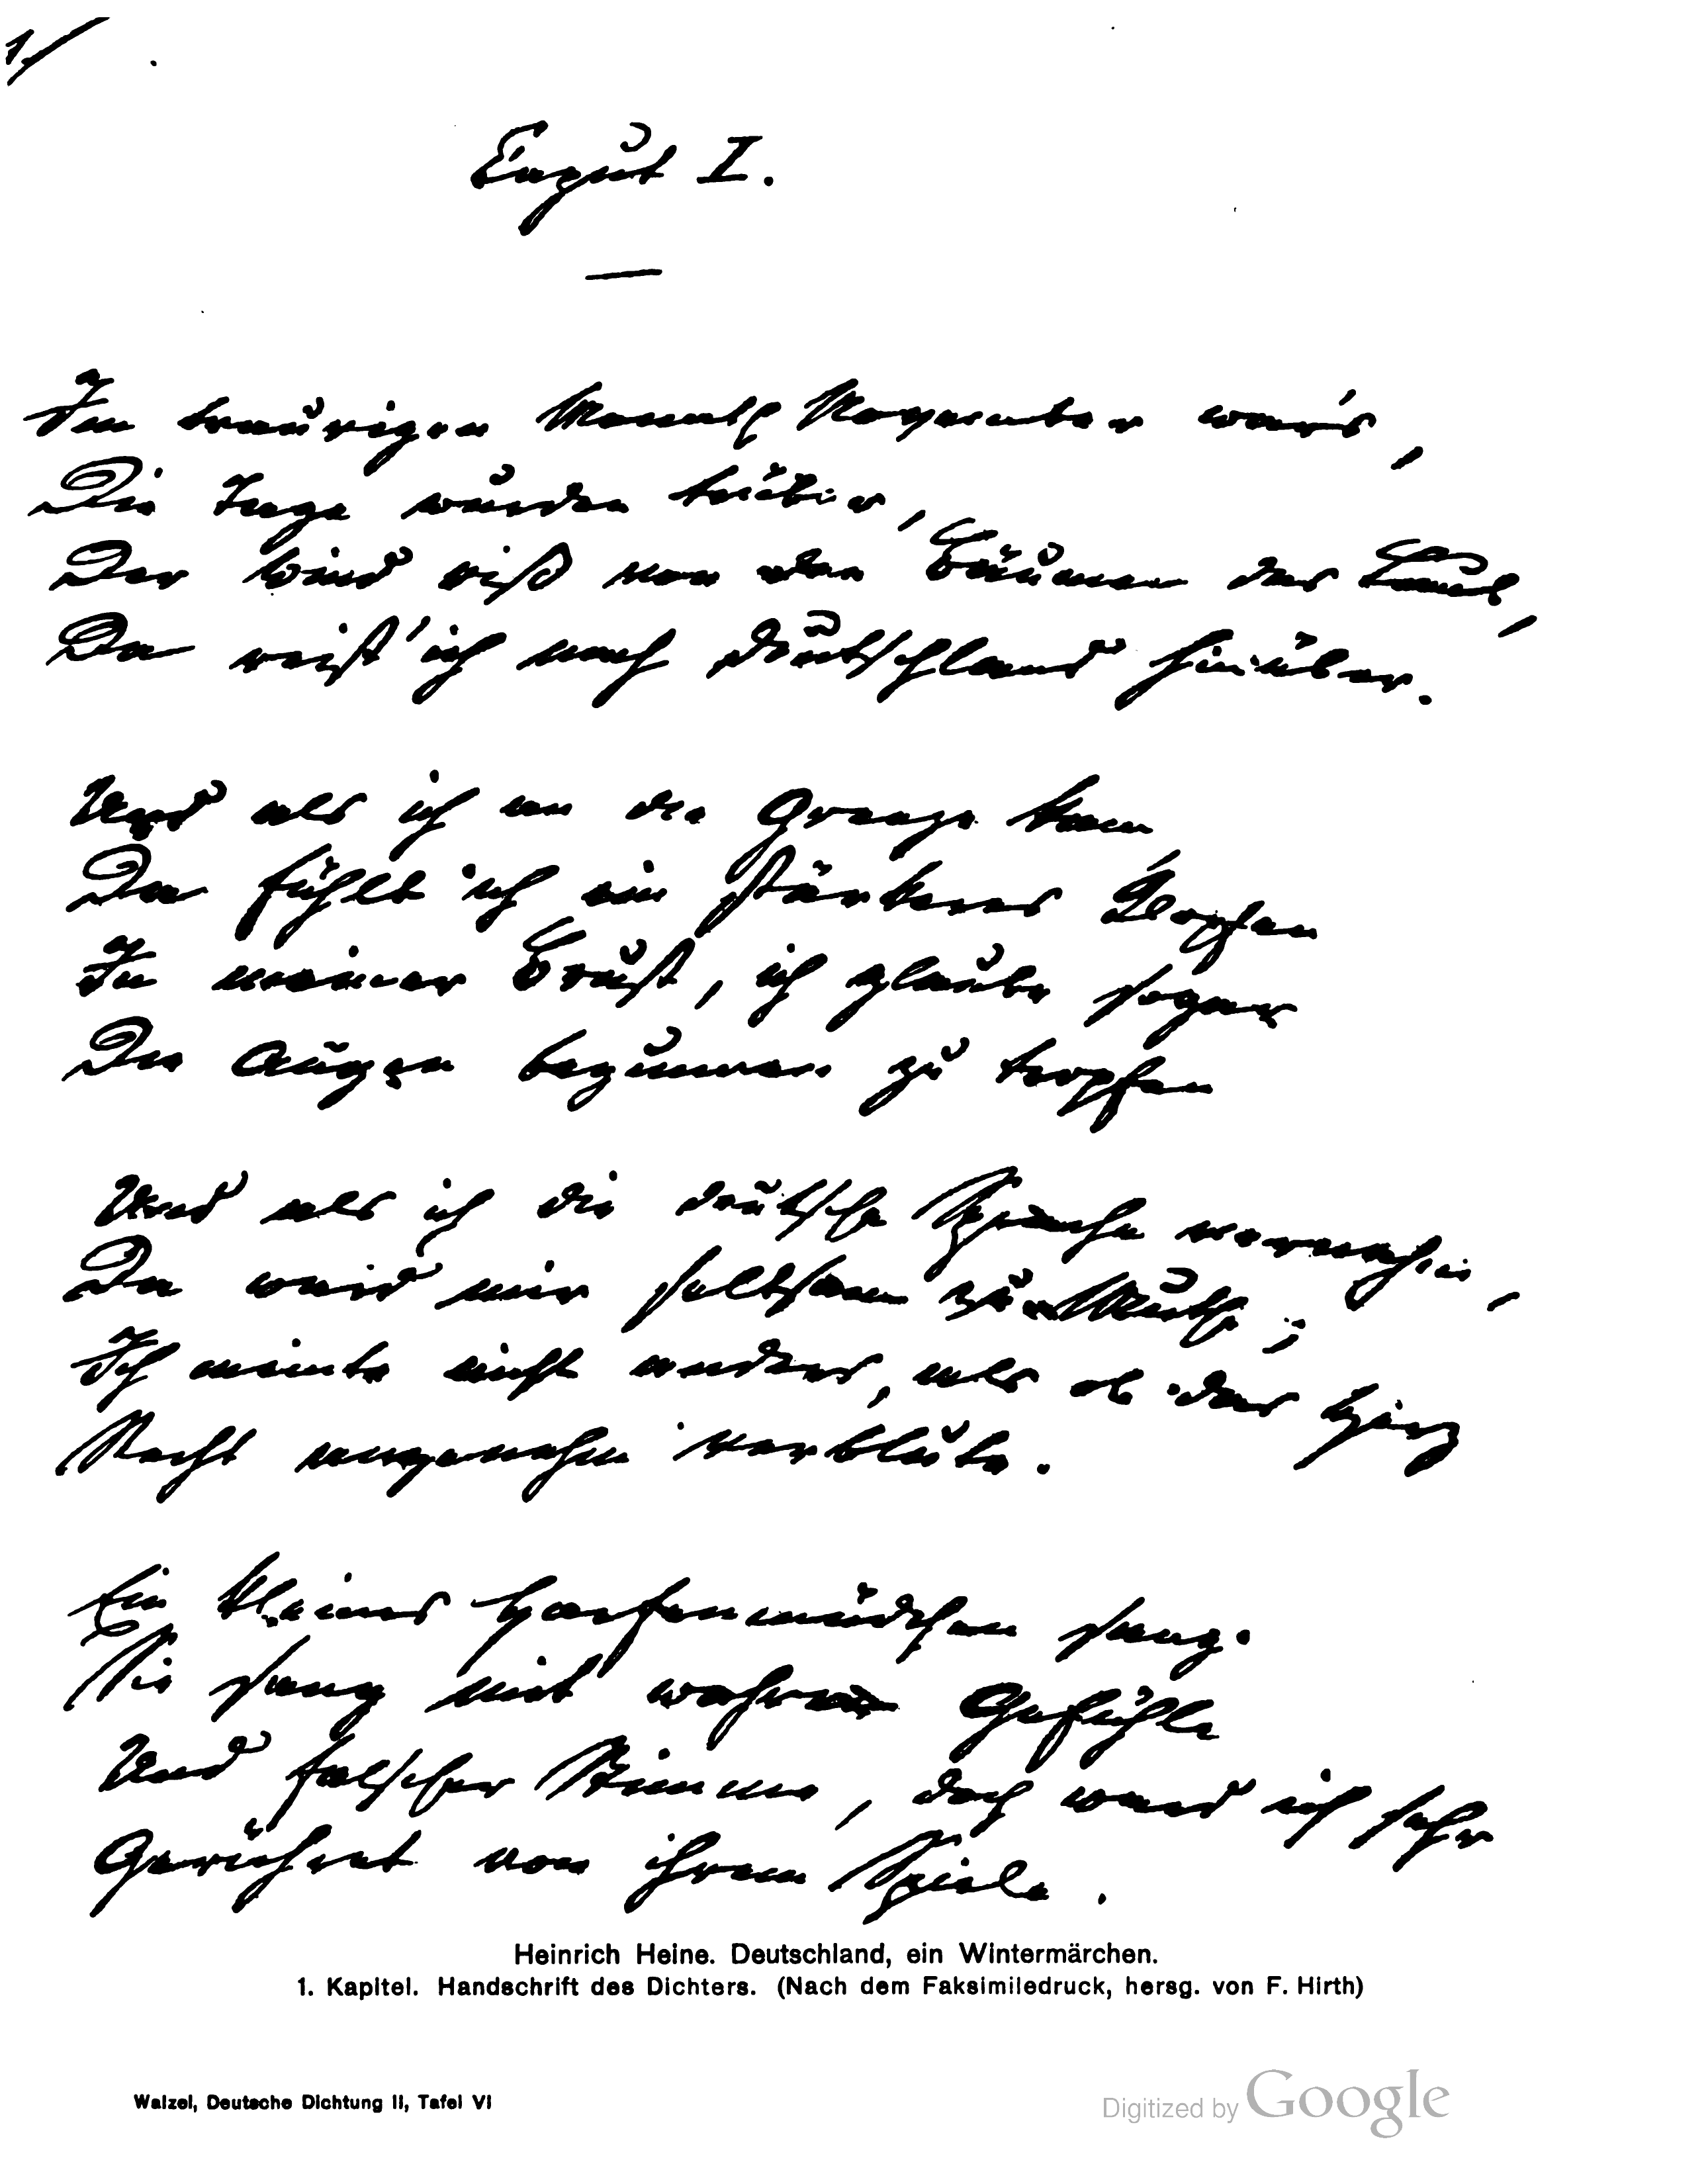 1/
Caput I.
Im traurigen Monath November war's,
Die Tage wurden trüber,
Der Wind riß von den Bäumen das Laub,
Da reist' ich nach Deutschland hinüber.
Und als ich an die Grenze kam
Da fühlt ich ein stärkeres Klopfen
In meiner Brust, ich glaube sogar
Die Augen begunnen zu tropfen
Und als ich die deutsche Sprache vernahm,
Da ward mir seltsam zu Muthe;
Ich meinte nicht anders, als ob das Herz
Recht angenehm verblute.
Ein kleines Harfenmädchen sang.
Sie sang mit wahrem Gefühle
Und falscher Stimme, doch ward ich sehr
Gerühret von ihrem Spiele.
Heinrich Heine. Deutschland, ein Wintermärchen.
1. Kapitel. Handschrift des Dichters. (Nach dem Faksimiledruck, hersg. von F. Hirth)
Walzel, Deutsche Dichtung II, Tafel VI
Digitized by Google